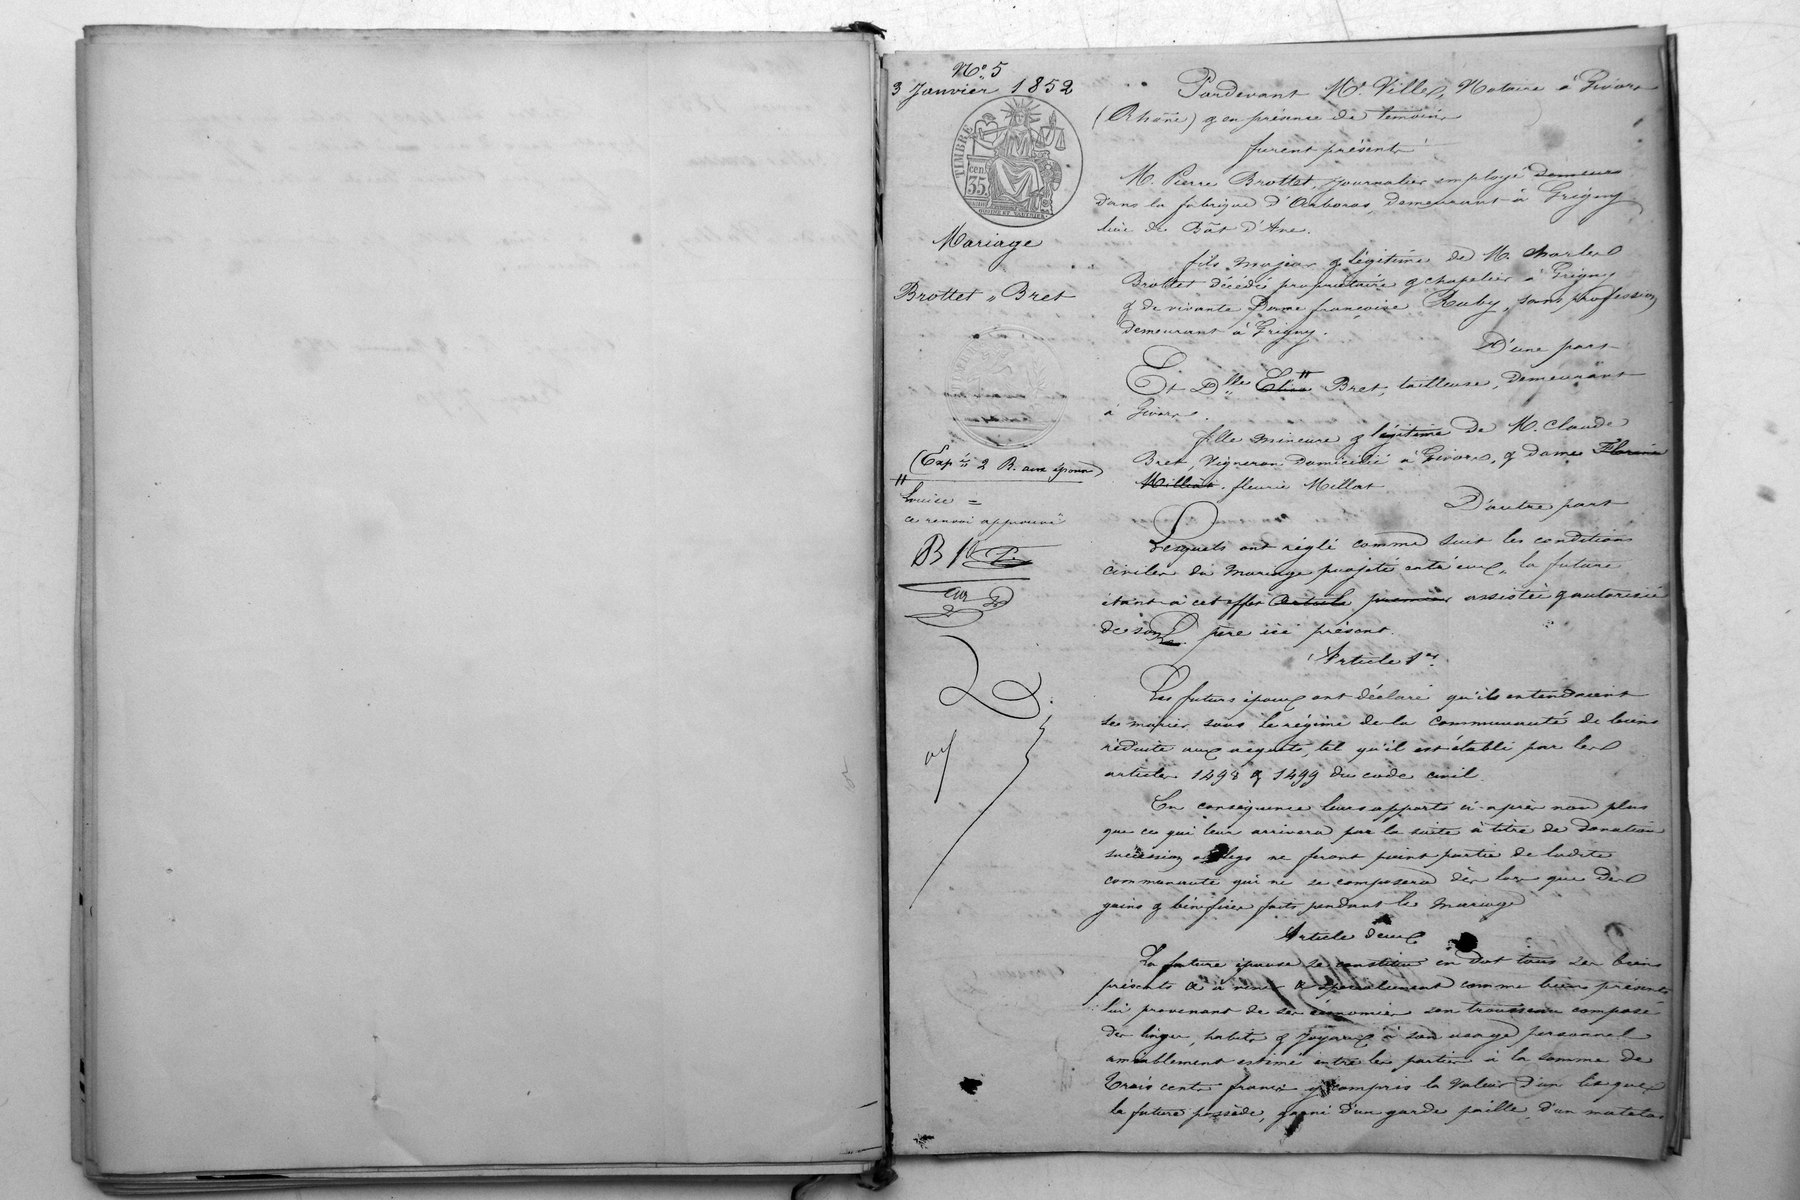 N° 5
3 Janvier 1852
TIMBRE
cen.
35
Mariage
Brottet, Bret
(Exp. 2 R. aux époux)
Louise =
ce renvoi approuvé
B
Pardevant Me Ville, Notaire à Givors
(Rhône) & en présence de témoins
furent présents
M. Pierre Brottet, journalier employé demeura
dans la fabrique d'Arboras, demeurant à Grigny
lieu de Bât d'Ane.
fils majeur & légitime de M. Charles
Brottet décédé propriétaire & chapelier à Grigny
& de vivante Dame françoise Ruby, sans profession
demeurant à Grigny.
D'une part
Et Dlle Elisa Bret, tailleuse, demeurant
à Givors.
fille mineure & légitime de M. Claude
Bret, Vigneron domicilié à Givors, & dame Florine
Millat. fleurie Millat
D'autre part
Lesquels ont réglé comme suit les conditions
civiles du mariage projeté entr'eux, la future
étant à cet effet Article premier assistée & autorisée
de son père ici présent.
Article 1er
Les futurs époux ont déclaré qu'ils entendaient
se marier sous le régime de la communauté de biens
réduite aux acquêts, tel qu'il est établi par les
articles 1498 & 1499 du code civil.
En conséquence leurs apports ci-après non plus
que ce qui leur arrivera par la suite à titre de donation
succession ou legs ne feront point partie de ladite
communauté qui ne se composera dès lors que des
gains & bénéfices faits pendant le mariage
Article deux
La future épouse se constitue en dot tous ses biens
présents & à venir & spécialement comme biens présents
lui provenant de ses économies son trousseau composé
de linges, habits & joyaux à son usage personnel
amiablement estimé entre les parties à la somme de
Trois cents francs y compris la valeur d'un lit que
la future possède, garni d'un garde paille, d'un matelas